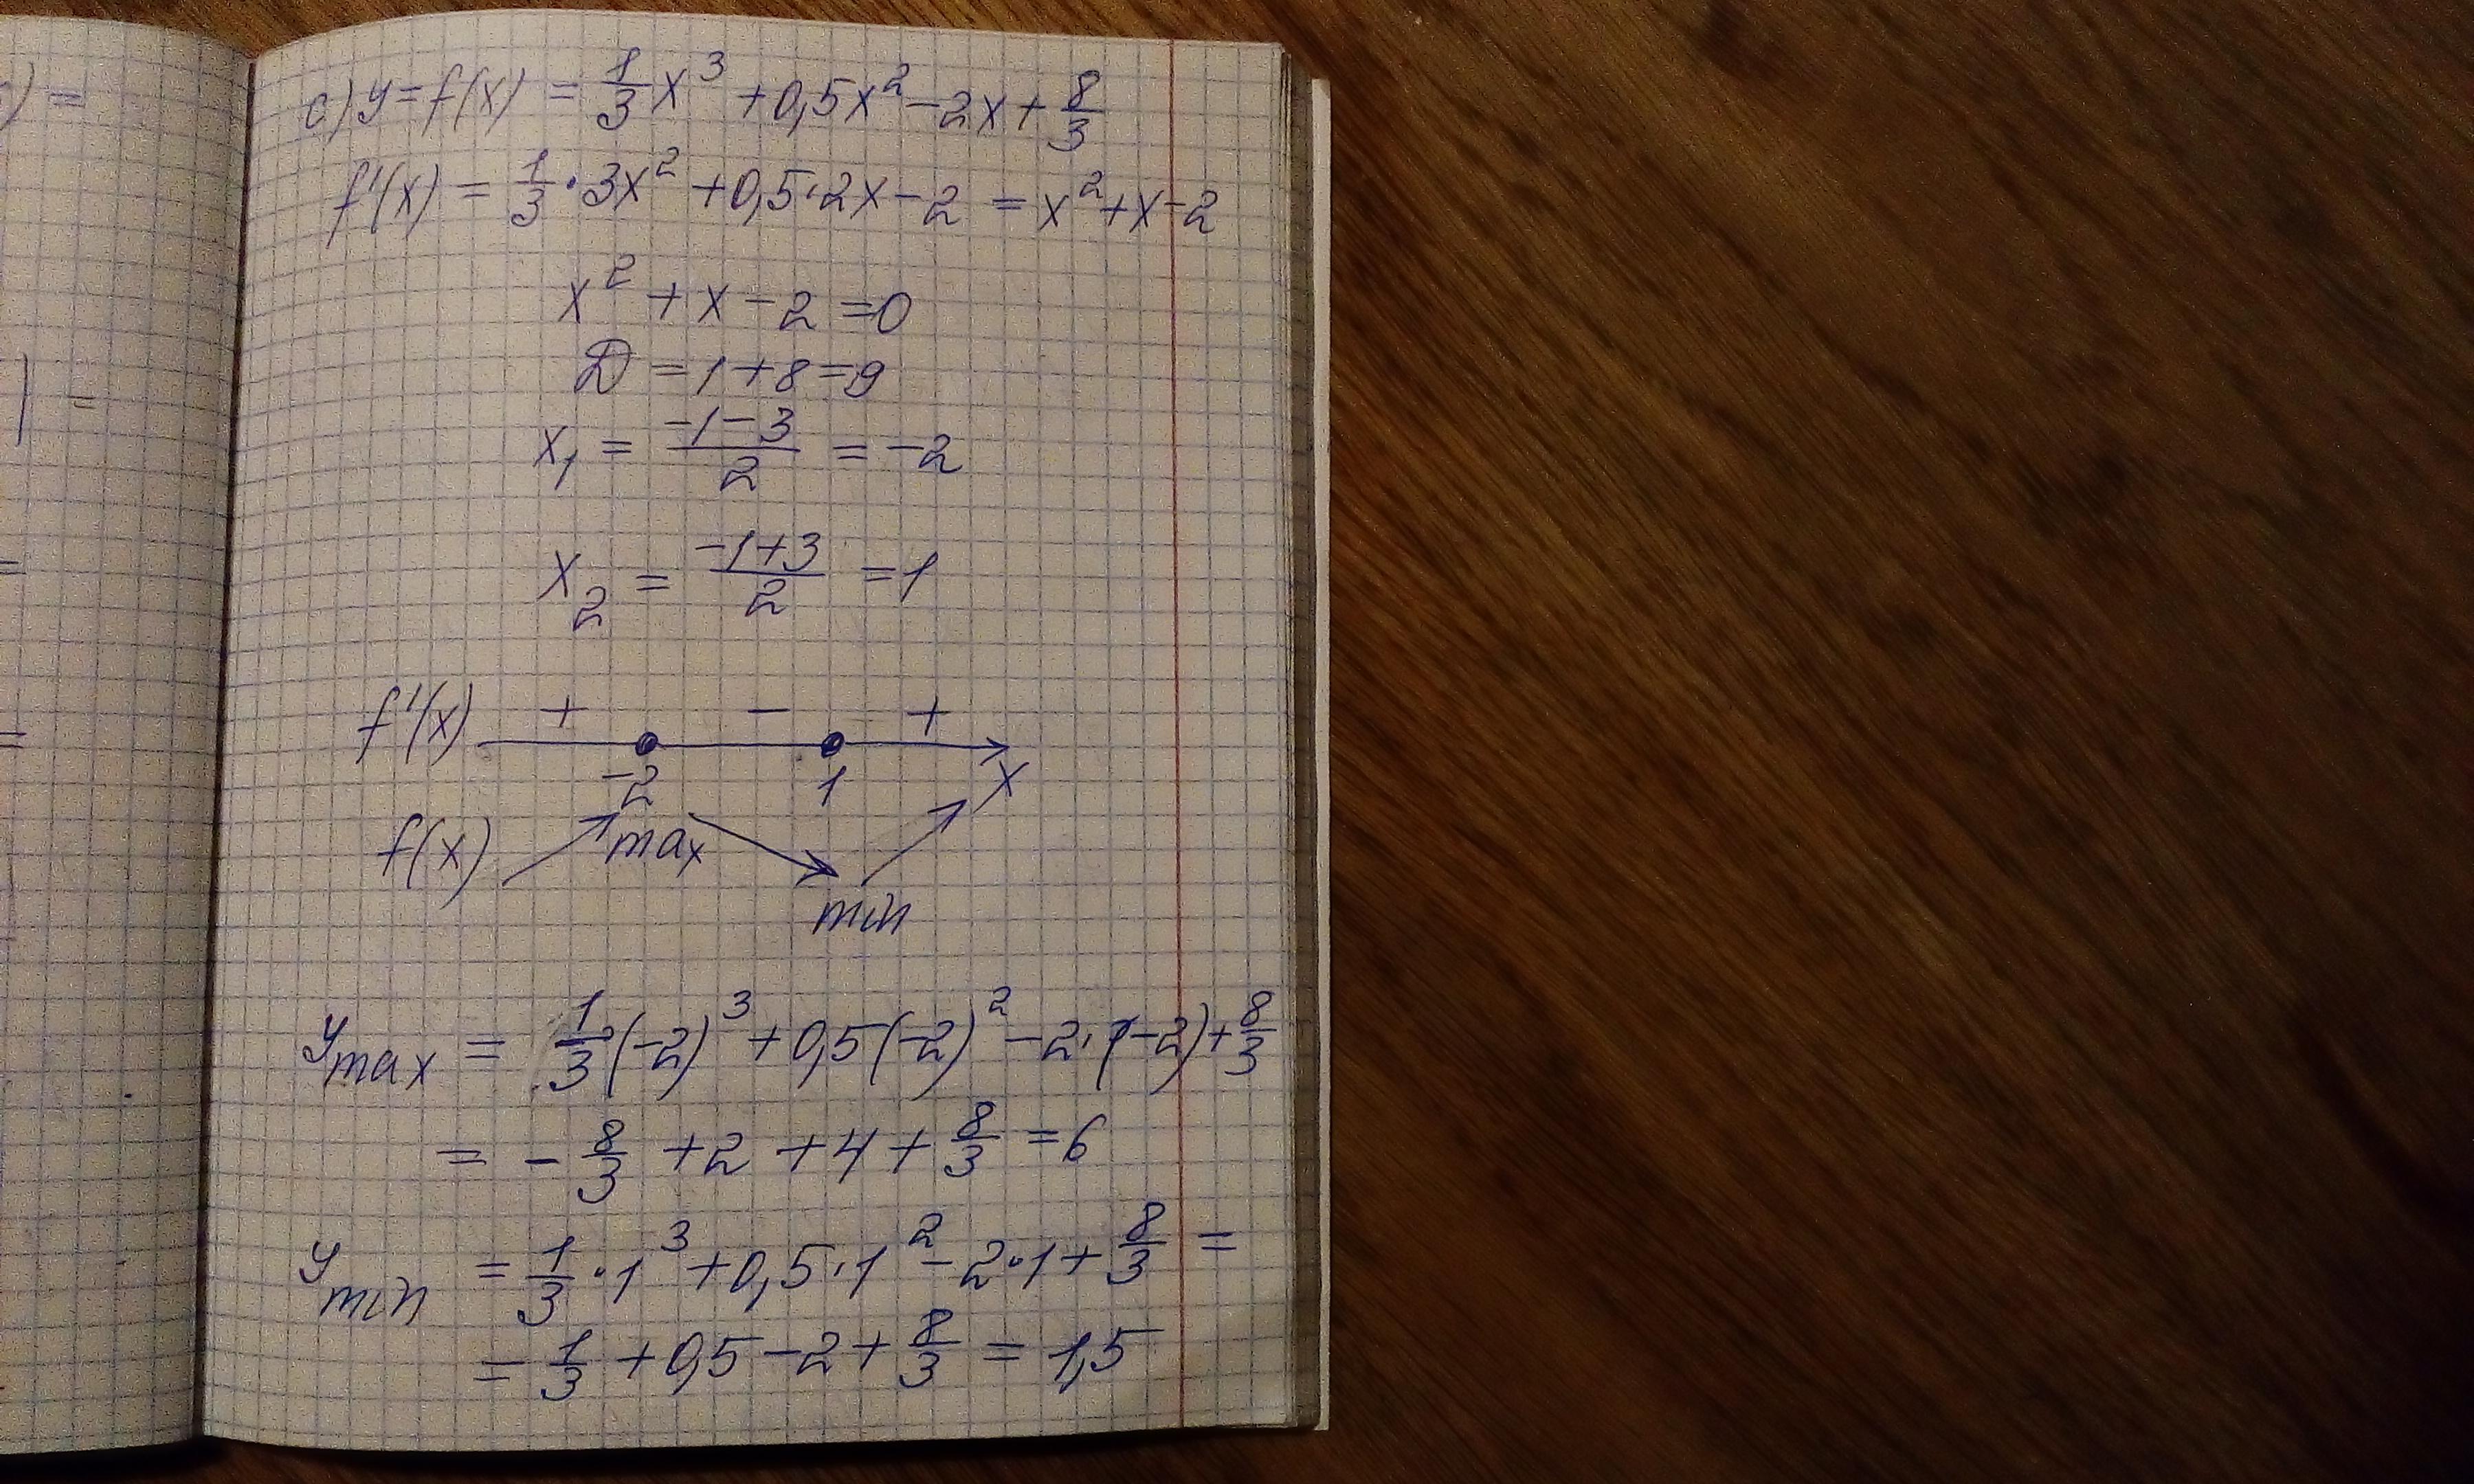 ) =
| =
=
=
c) y = f(x) = 1/3 x³ + 0,5x² - 2x + 8/3
f'(x) = 1/3 · 3x² + 0,5 · 2x - 2 = x² + x - 2
x² + x - 2 = 0
D = 1 + 8 = 9
x₁ = (-1-3)/2 = -2
x₂ = (-1+3)/2 = 1
f'(x) + - +
-2 1 x
f(x) max
min
y max = 1/3 (-2)³ + 0,5 (-2)² - 2 · (-2) + 8/3
= - 8/3 + 2 + 4 + 8/3 = 6
y min = 1/3 · 1³ + 0,5 · 1² - 2 · 1 + 8/3 =
= 1/3 + 0,5 - 2 + 8/3 = 1,5